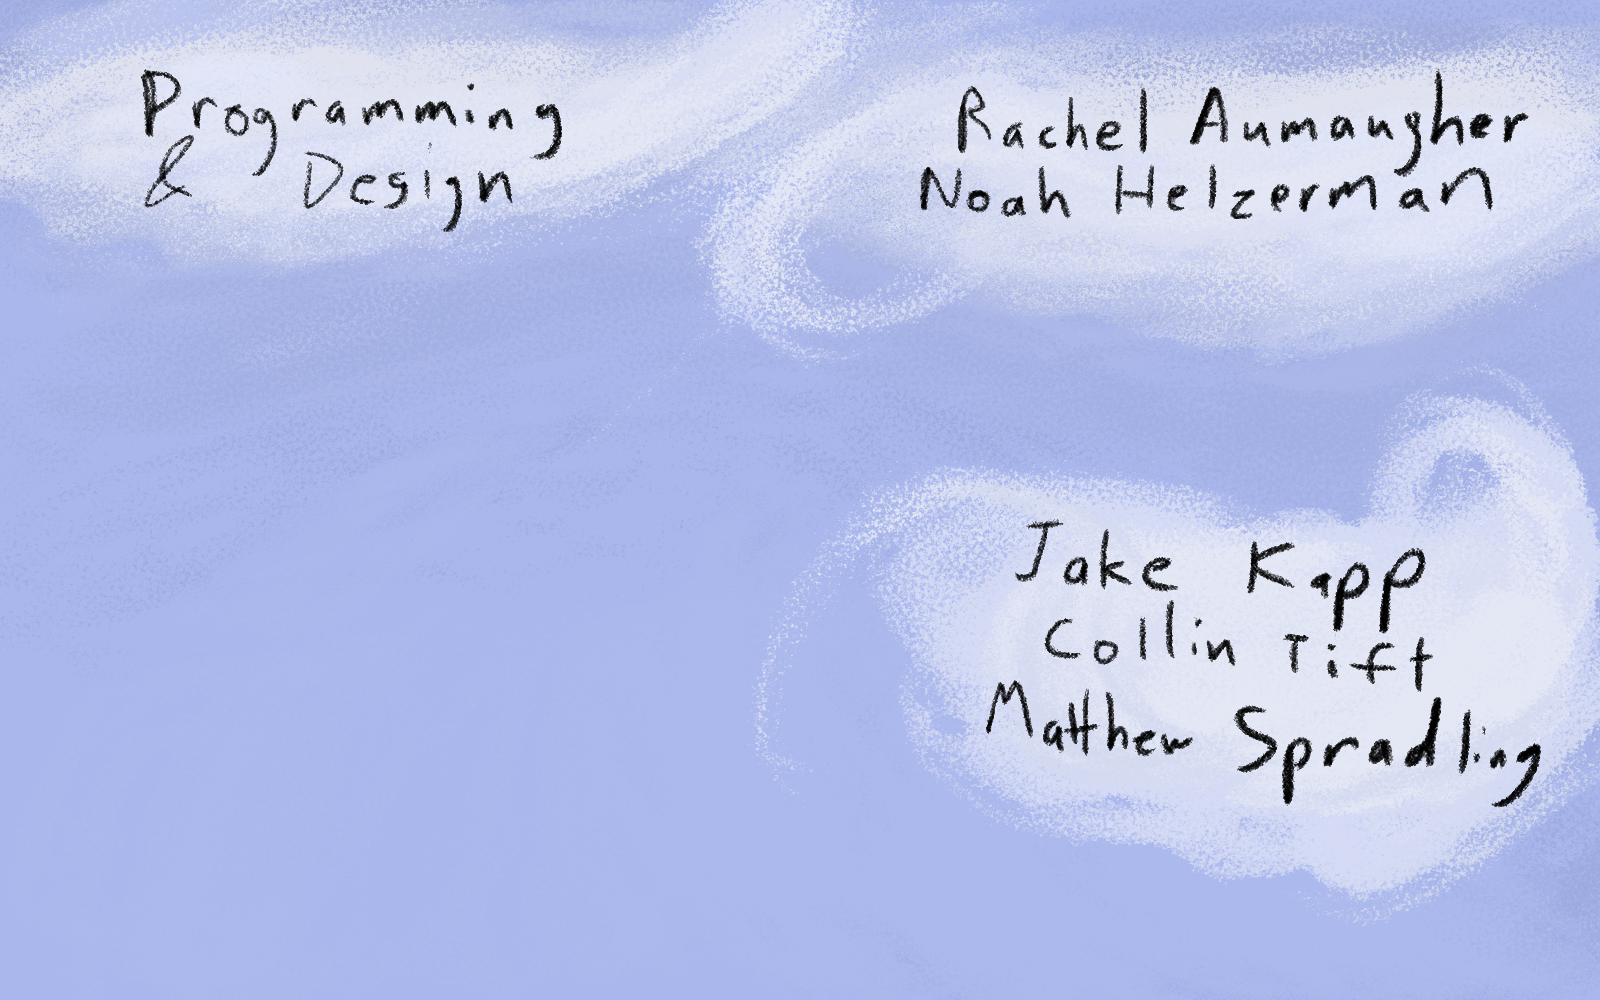 Programming
& Design
Rachel Aumaugher
Noah Helzerman
Jake Kapp
Collin Tift
Matthew Spradling